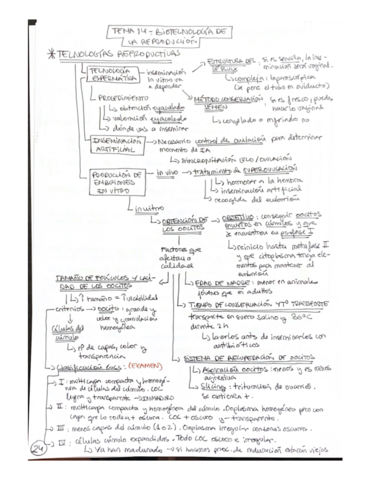 TEMA 14 - BIOTECNOLOGÍA DE
LA REPRODUCCIÓN
* TECNOLOGÍAS REPRODUCTIVAS
TECNOLOGÍA
ESPERMÁTICA
inseminación
in vitro en
a depender
ESTRUCTURA DEL
CÉRVIX
si es sencilla, la inse-
minación será vaginal.
compleja: laparoscópica
PROCEDIMIENTO
obtención eyaculado
valoración eyaculado
dónde vas a inseminar
MÉTODO CONSERVACIÓN
si es fresco, puedes
hacerlo vaginal
congelado o refrigerado no
INSEMINACIÓN
ARTIFICIAL
Necesario control de ovulación para determinar
momento de IA
SINCRONIZACIÓN CELO/OVULACIÓN
PRODUCCIÓN DE
EMBRIONES
IN VITRO
in vivo
tratamiento de SUPEROVULACIÓN
hormonar a la hembra
inseminación artificial
recogida del embrión
in vitro
OBTENCIÓN DE
LOS OOCITOS
OBJETIVO: conseguir oocitos
que
se encuentran en profase I
reinicio hasta metafase II
y que citoplasma tenga ele-
mentos para mantener al
embrión
Factores que
afectan a
calidad
TAMAÑO DE FOLÍCULOS Y CALI-
DAD DE LOS OOCITOS
↑ tamaño = ↑ viabilidad
criterios
oocito: grande y
color y granulación
homogénea
células del
cúmulo
nº de capas, color y
transparencia
EDAD DE MADRE: menor en animales
jóvenes que en adultos
TIEMPO DE CONSERVACIÓN Y Tº TRANSPORTE
transporte en suero salino y 30ºC
durante 2h
lavarlos antes de
con
antibióticos
SISTEMA DE RECUPERACIÓN DE OOCITOS
Aspiración oocitos:
Slicing: trituración de ovarios.
Clasificación COCs: (EXAMEN)
I: multicapa compacta y homogé-
nea de células del cúmulo. COC
ligero y transparente
II: multicapa compacta y homogénea del cúmulo. Ooplasma homogéneo pero con
capa que lo rodea + oscura. COC + oscuro y - transparente.
III: menos capas del cúmulo (1 o 2). Ooplasma irregular con zonas oscuras.
IV: células cúmulo expandidas. Todo COC oscuro e irregular.
Ya han madurado
si haces proc. de maduración estarán viejos
24